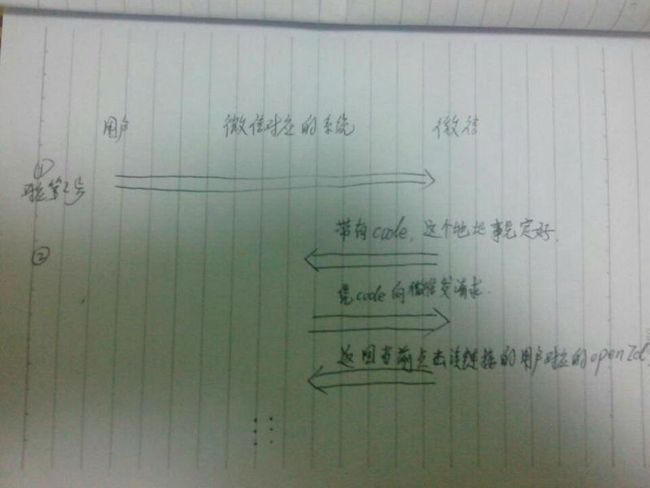 用户 微信对应的系统 微信
①
②
带有code,这个地址事先定好.
凭code向微信发请求.
返回当前点击该链接的用户对应的openId